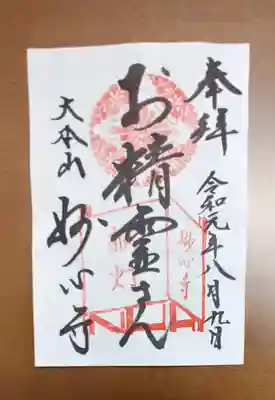 奉拝
令和元年八月九日
お精霊さん
大本山
妙心寺
妙心寺